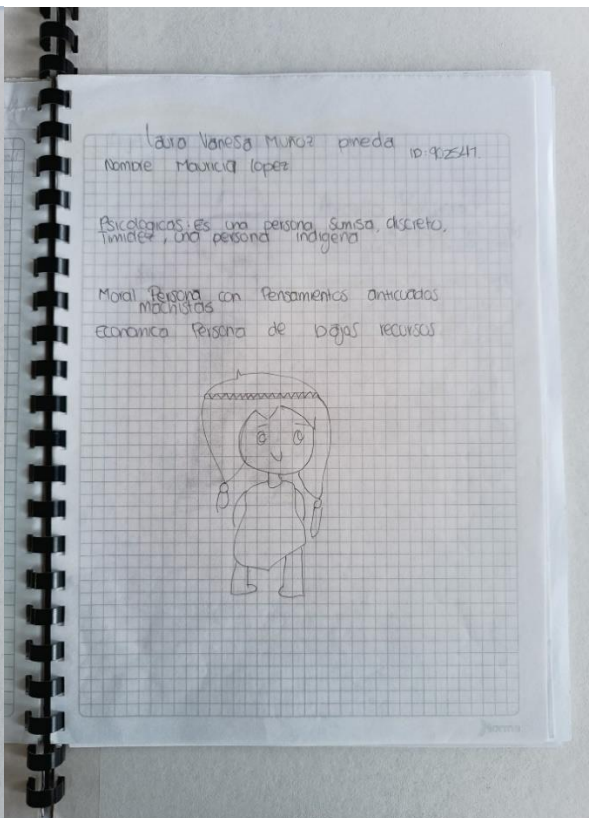 Laura Vanesa Muñoz Pineda ID: 902547.
Nombre Mauricia lopez
Psicologicas: Es una persona Sumisa, discreto,
Timidez, una persona indigena
Moral Persona con Pensamientos anticuados
machistas
Economico Persona de bajos recursos
Norma